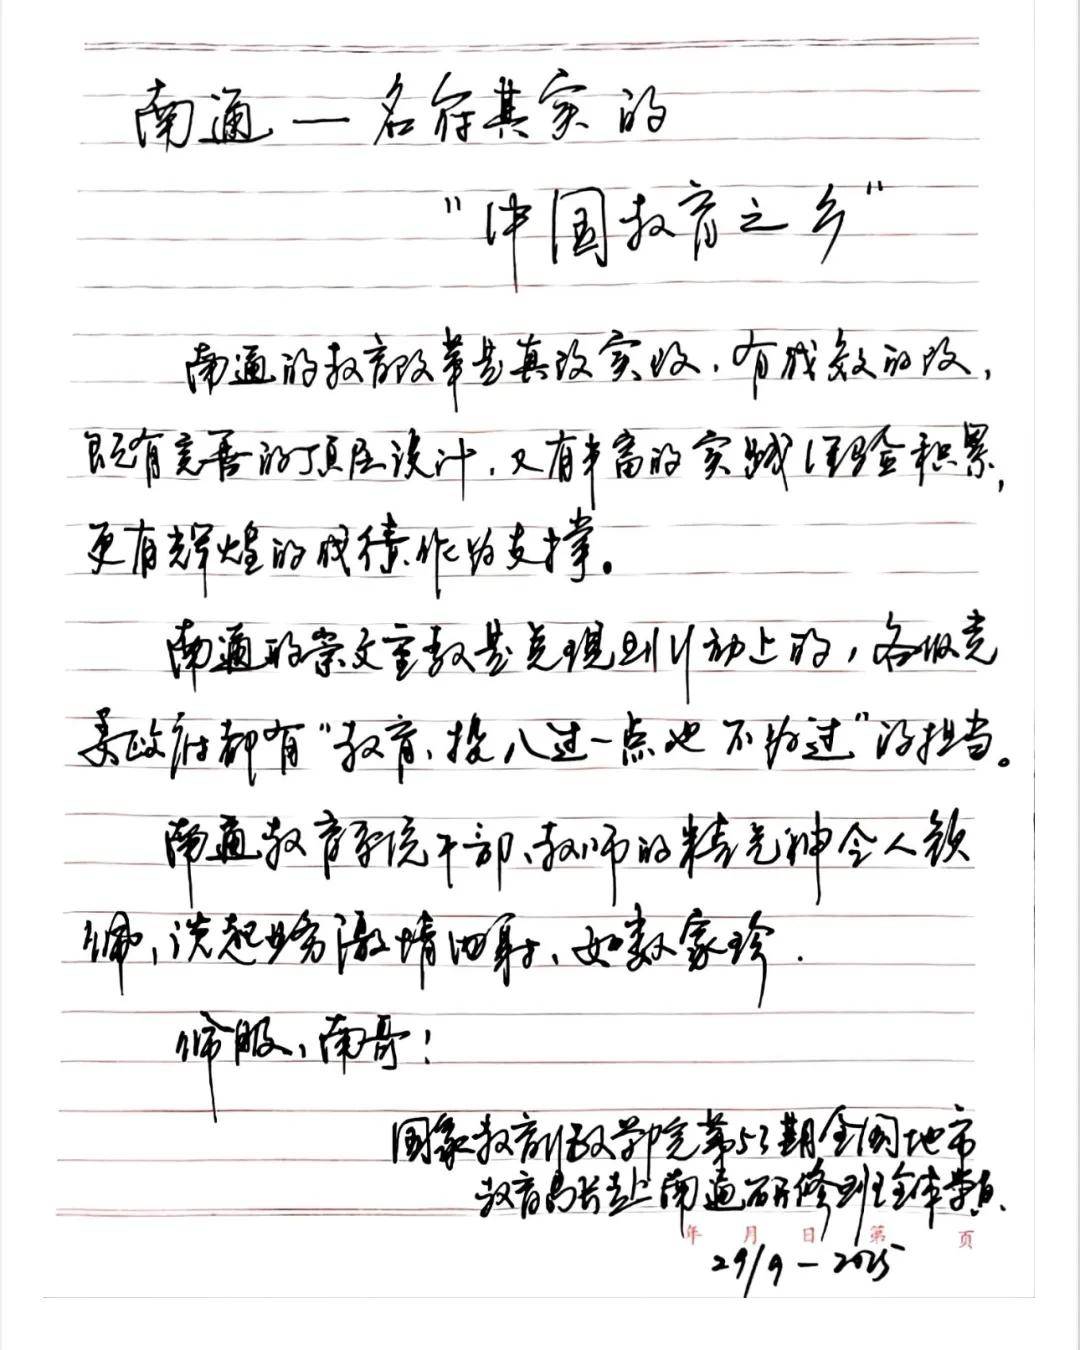 南通—名符其实的
"中国教育之乡"
南通的教育改革是真改实改、有成效的改，
既有完善的顶层设计，又有丰富的实践经验积累，
更有辉煌的成绩作为支撑。
南通的崇文重教是体现到行动上的，各级党
委政府都有"教育，投入过一点也不为过"的担当。
南通教育系统干部、教师的精气神令人钦
佩，谈起业务激情四射、如数家珍.
佩服，南哥！
国家教育行政学院第53期全国地市
教育局长赴南通研修班全体学员.
年 月 日 第 页
29/9-2025